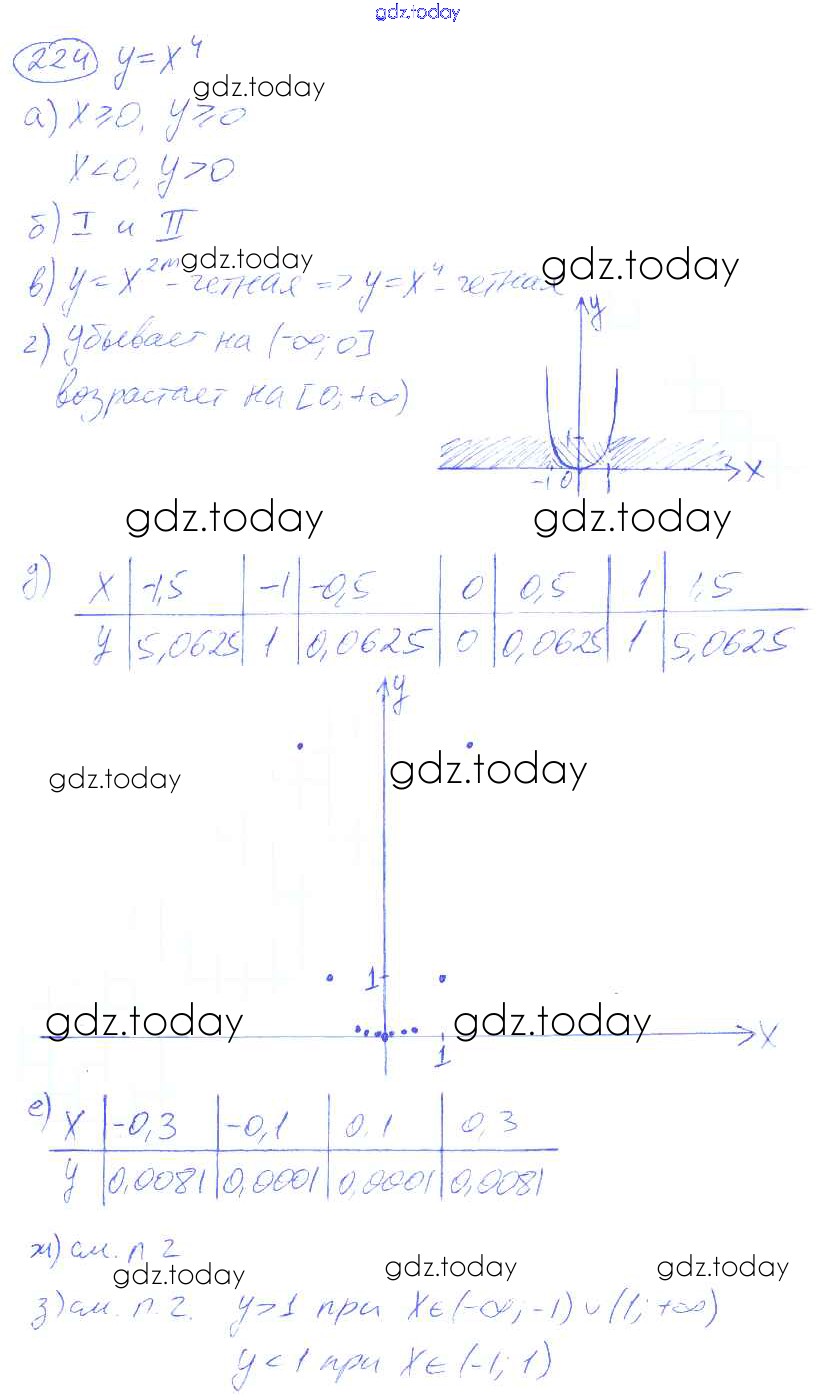 gdz.today
224 y=x⁴
gdz.today
а) x≥0, y≥0
x<0, y>0
б) I и II
gdz.today gdz.today
в) y=x²ᵐ - четная => y=x⁴ - четная
г) убывает на (-∞; 0]
возрастает на [0; +∞)
y
1
-1 0 1 x
gdz.today gdz.today
д) x -1,5 -1 -0,5 0 0,5 1 1,5
y 5,0625 1 0,0625 0 0,0625 1 5,0625
y
gdz.today gdz.today
1
gdz.today gdz.today
x
1
е) x -0,3 -0,1 0,1 0,3
y 0,0081 0,0001 0,0001 0,0081
ж) см. п. г
gdz.today gdz.today gdz.today
з) см. п. г. y>1 при x∈(-∞; -1)∪(1; +∞)
y<1 при x∈(-1; 1)